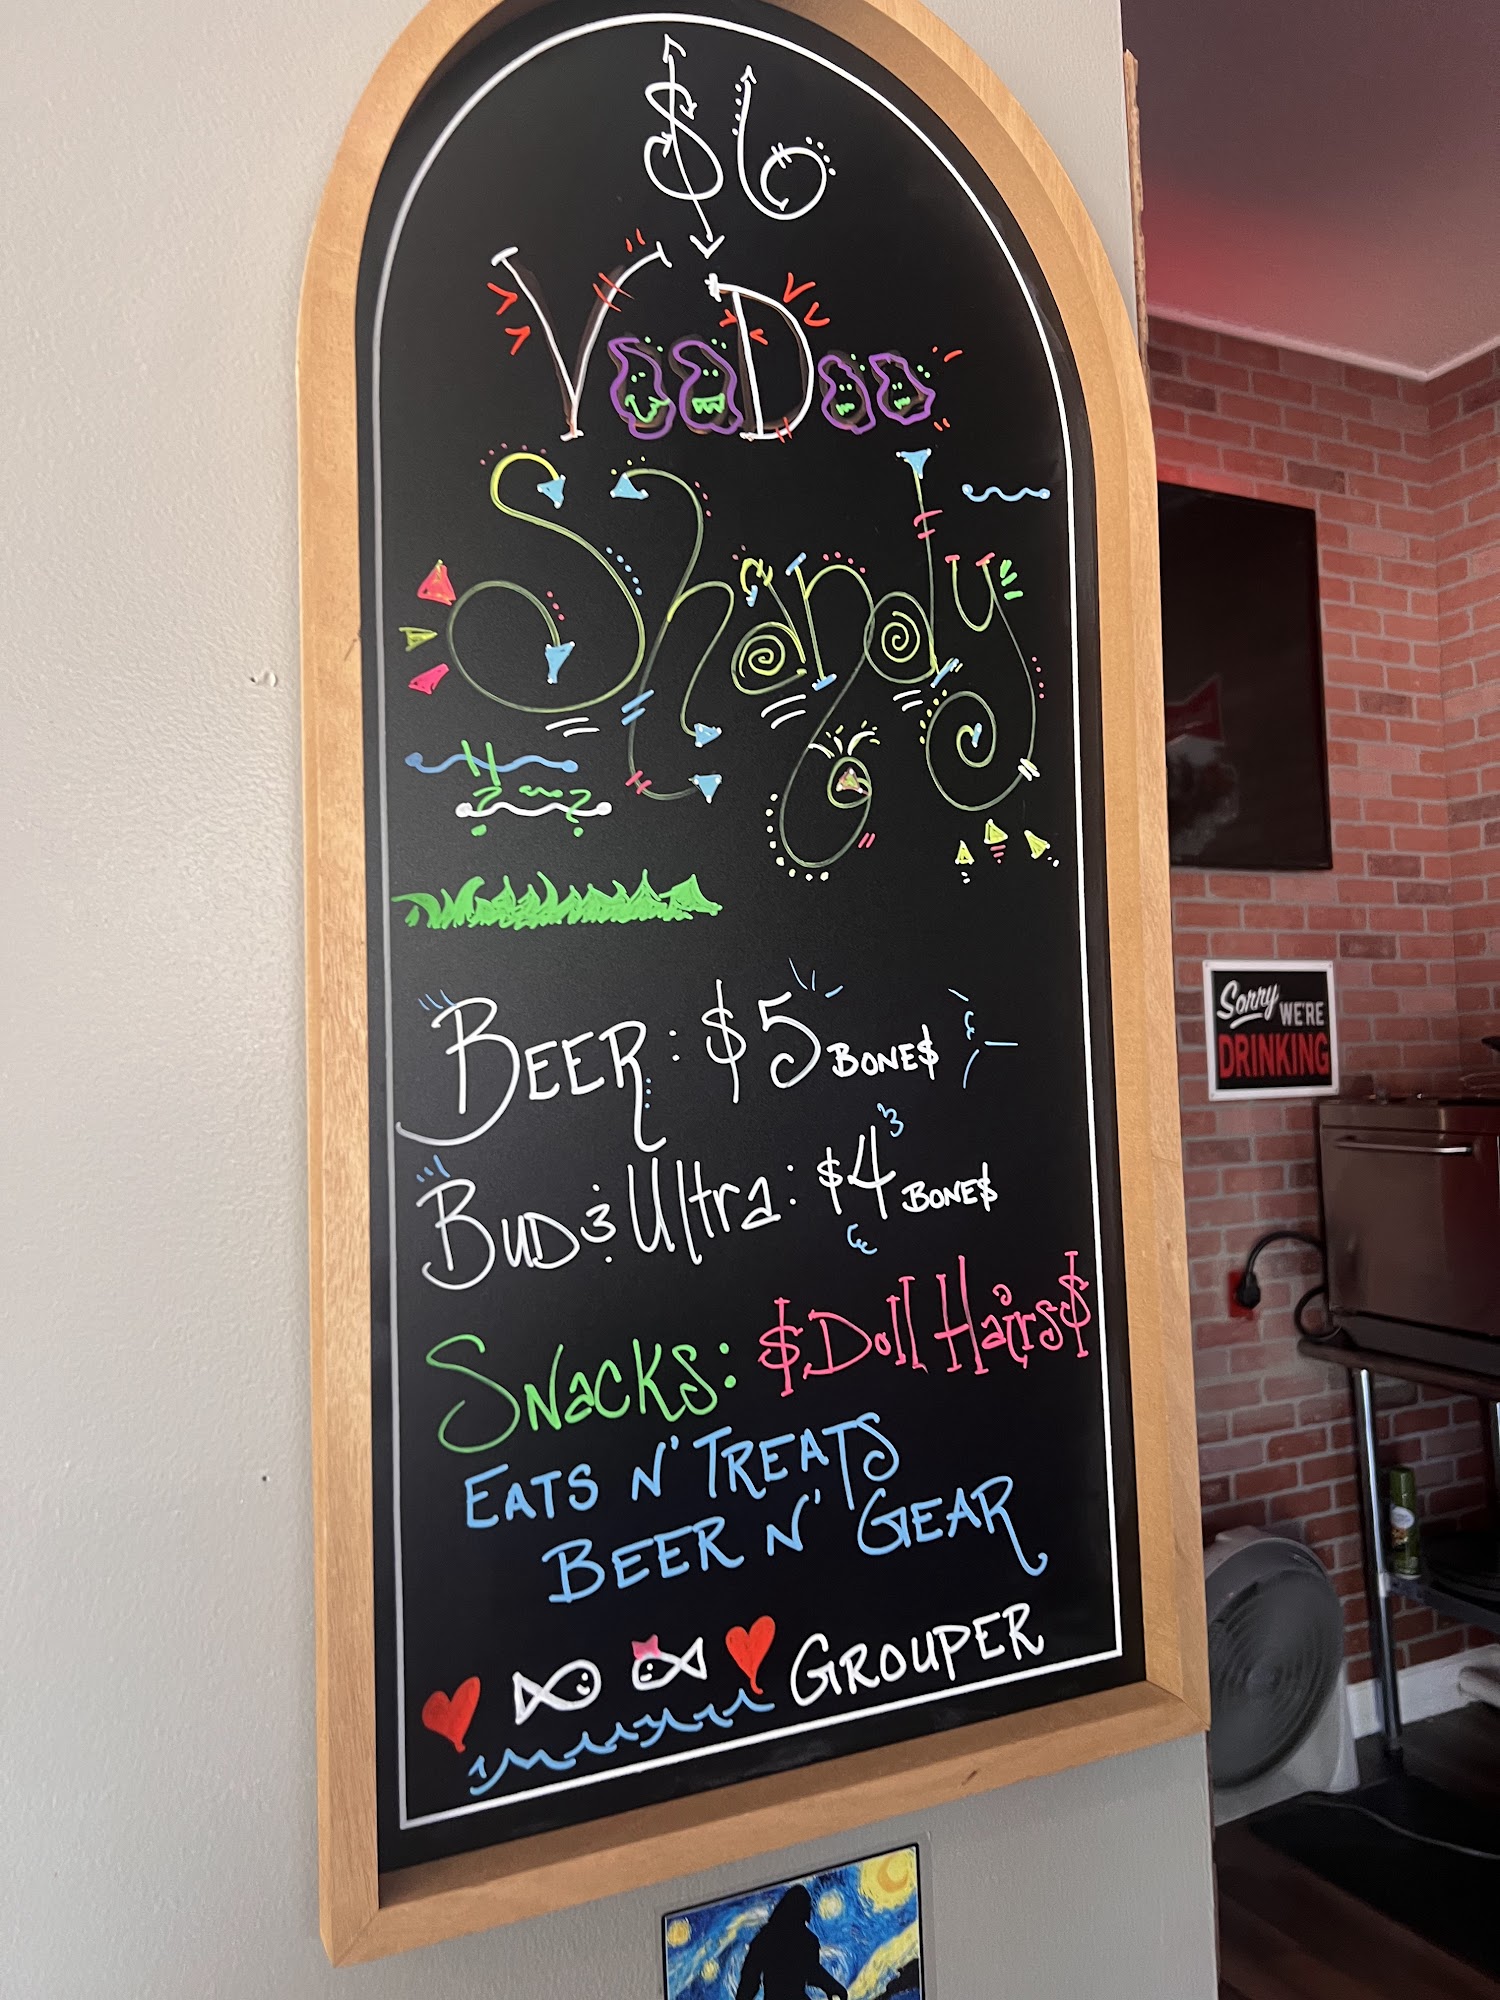 $6
VooDoo
Shandy
BEER: $5 BONE$
BUD & Ultra: $4 BONE$
SNACKS: $Doll Hairs$
EATS N' TREATS
BEER N' GEAR
GROUPER
Sorry WE'RE
DRINKING